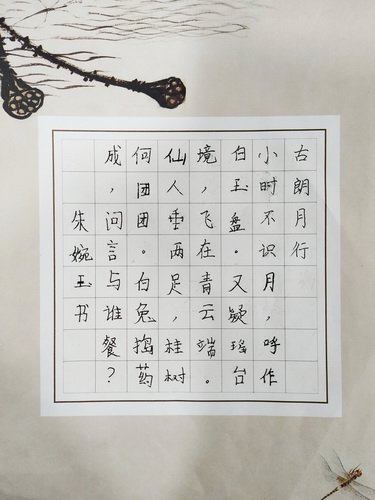 古朗月行
小时不识月，呼作
白玉盘。又疑瑶台
境，飞在青云端。
仙人垂两足，桂树
何团团。白兔捣药
成，问言与谁餐？
朱婉玉书